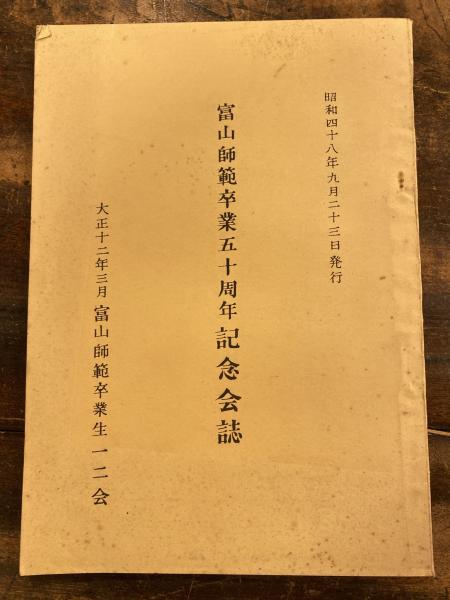 昭和四十八年九月二十三日発行
富山師範卒業五十周年記念会誌
大正十二年三月 富山師範卒業生 一二会